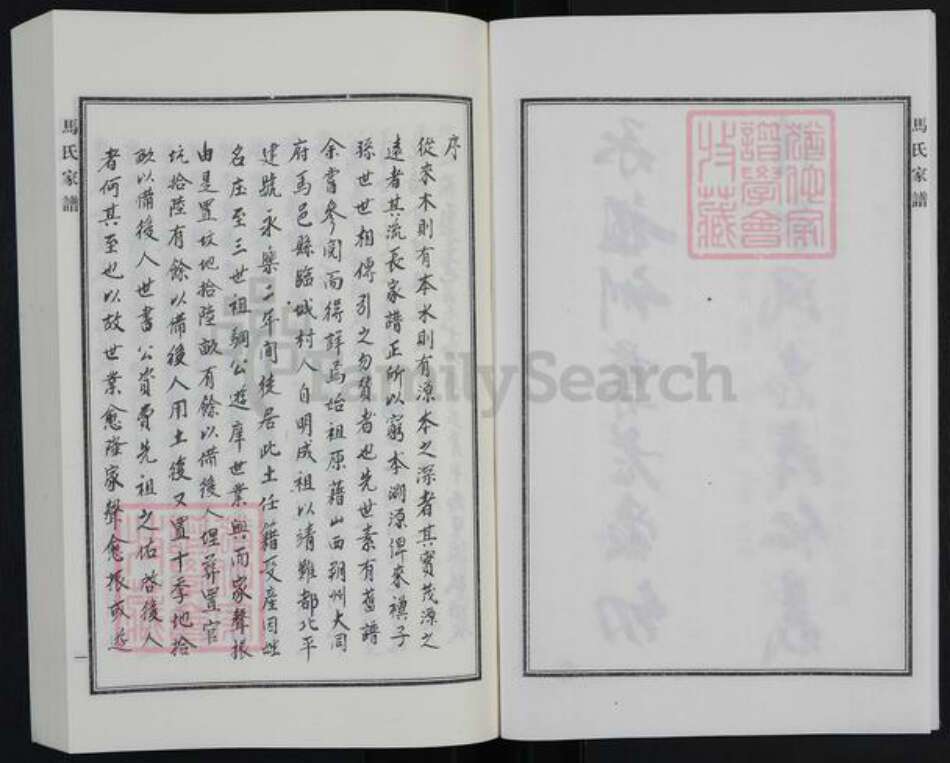 馬氏家譜
序
從來木則有本水則有源本之深者其實茂源之
遠者其流長家譜正所以窮本溯源俾來禩子
孫世世相傳引之勿替者也先世素有舊譜
余嘗參閱而得詳焉始祖原籍山西朔州大同
府馬邑縣臨城村人自明成祖以靖難都北平
建號永樂二年間徙居此土任籍受產因姓
名庄至三世祖駉公遊庠世業興而家聲振
由是置坟地拾陸畝有餘以備後人埋葬置官
坑拾陸有餘以備後人用土後又置十季地拾
畝以備後人世書公資費先祖之佑啓後人
者何其至也以故世業愈隆家聲愈振或遊
一
馬氏家譜
譜學會
收藏
FamilySearch